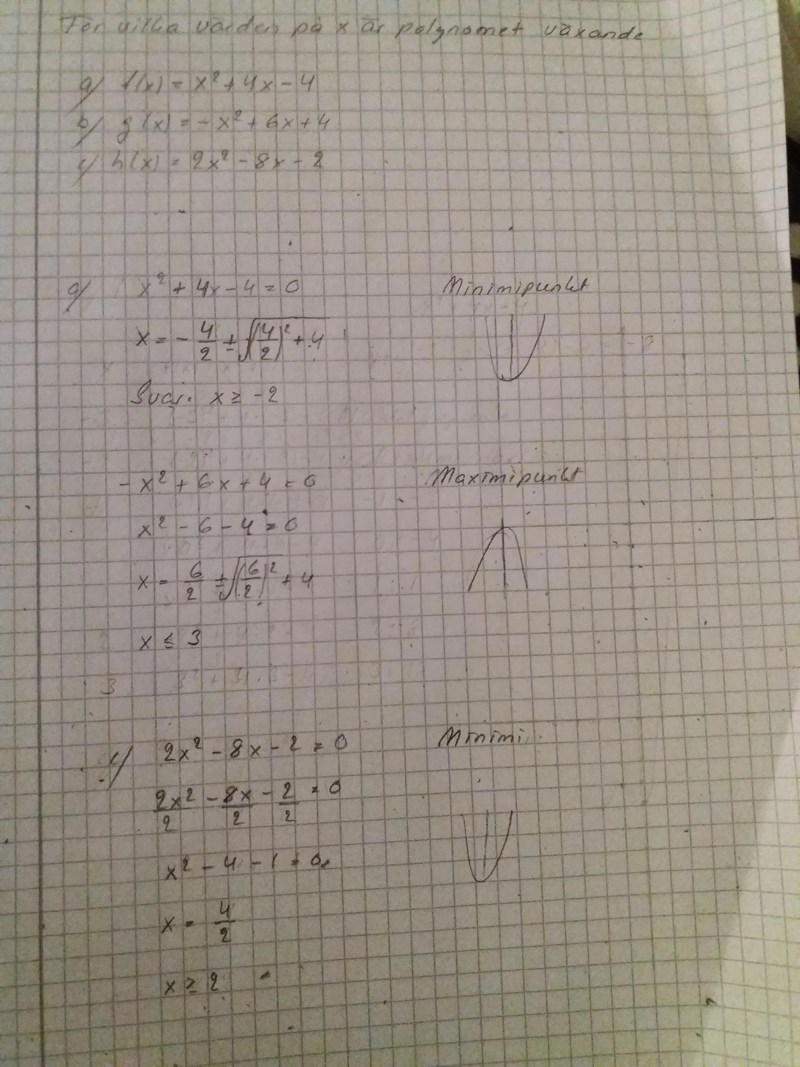 För vilka värden på x är polynomet växande
a) f(x) = x² + 4x - 4
b) g(x) = -x² + 6x + 4
c) h(x) = 2x² - 8x - 2
a) x² + 4x - 4 = 0 Minimipunkt
x = - 4/2 ± √((4/2)² + 4)
Svar: x ≥ -2
-x² + 6x + 4 = 0 Maximipunkt
x² - 6 - 4 = 0
x = 6/2 ± √((6/2)² + 4)
x ≤ 3
3
c) 2x² - 8x - 2 = 0 Minimi.
2x²/2 - 8x/2 - 2/2 = 0
x² - 4 - 1 = 0
x = 4/2
x ≥ 2